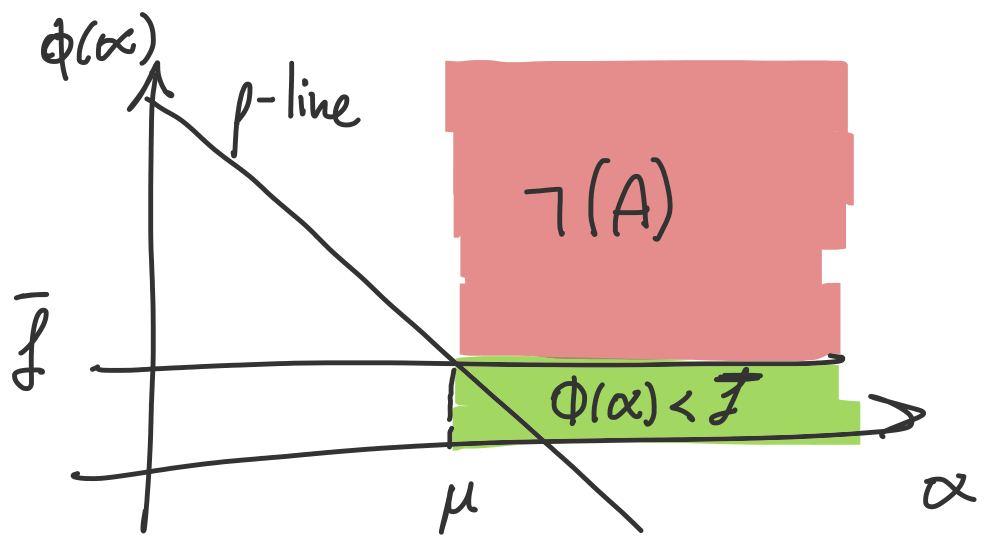 ϕ(α)
ρ-line
¬(A)
f̄
ϕ(α) < f̄
μ
α